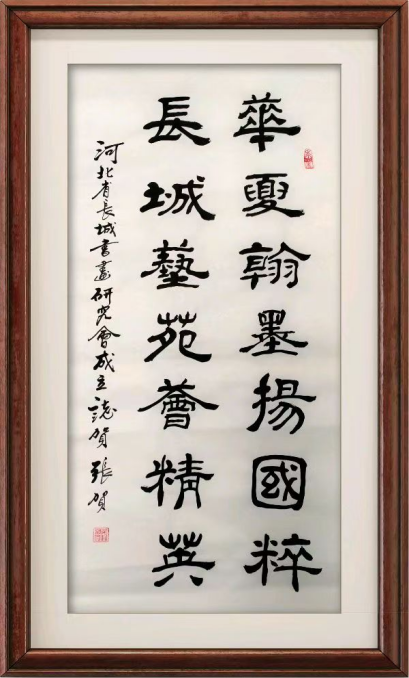 華夏翰墨揚國粹
長城藝苑薈精英
河北省長城書畫研究會成立誌賀 張賀